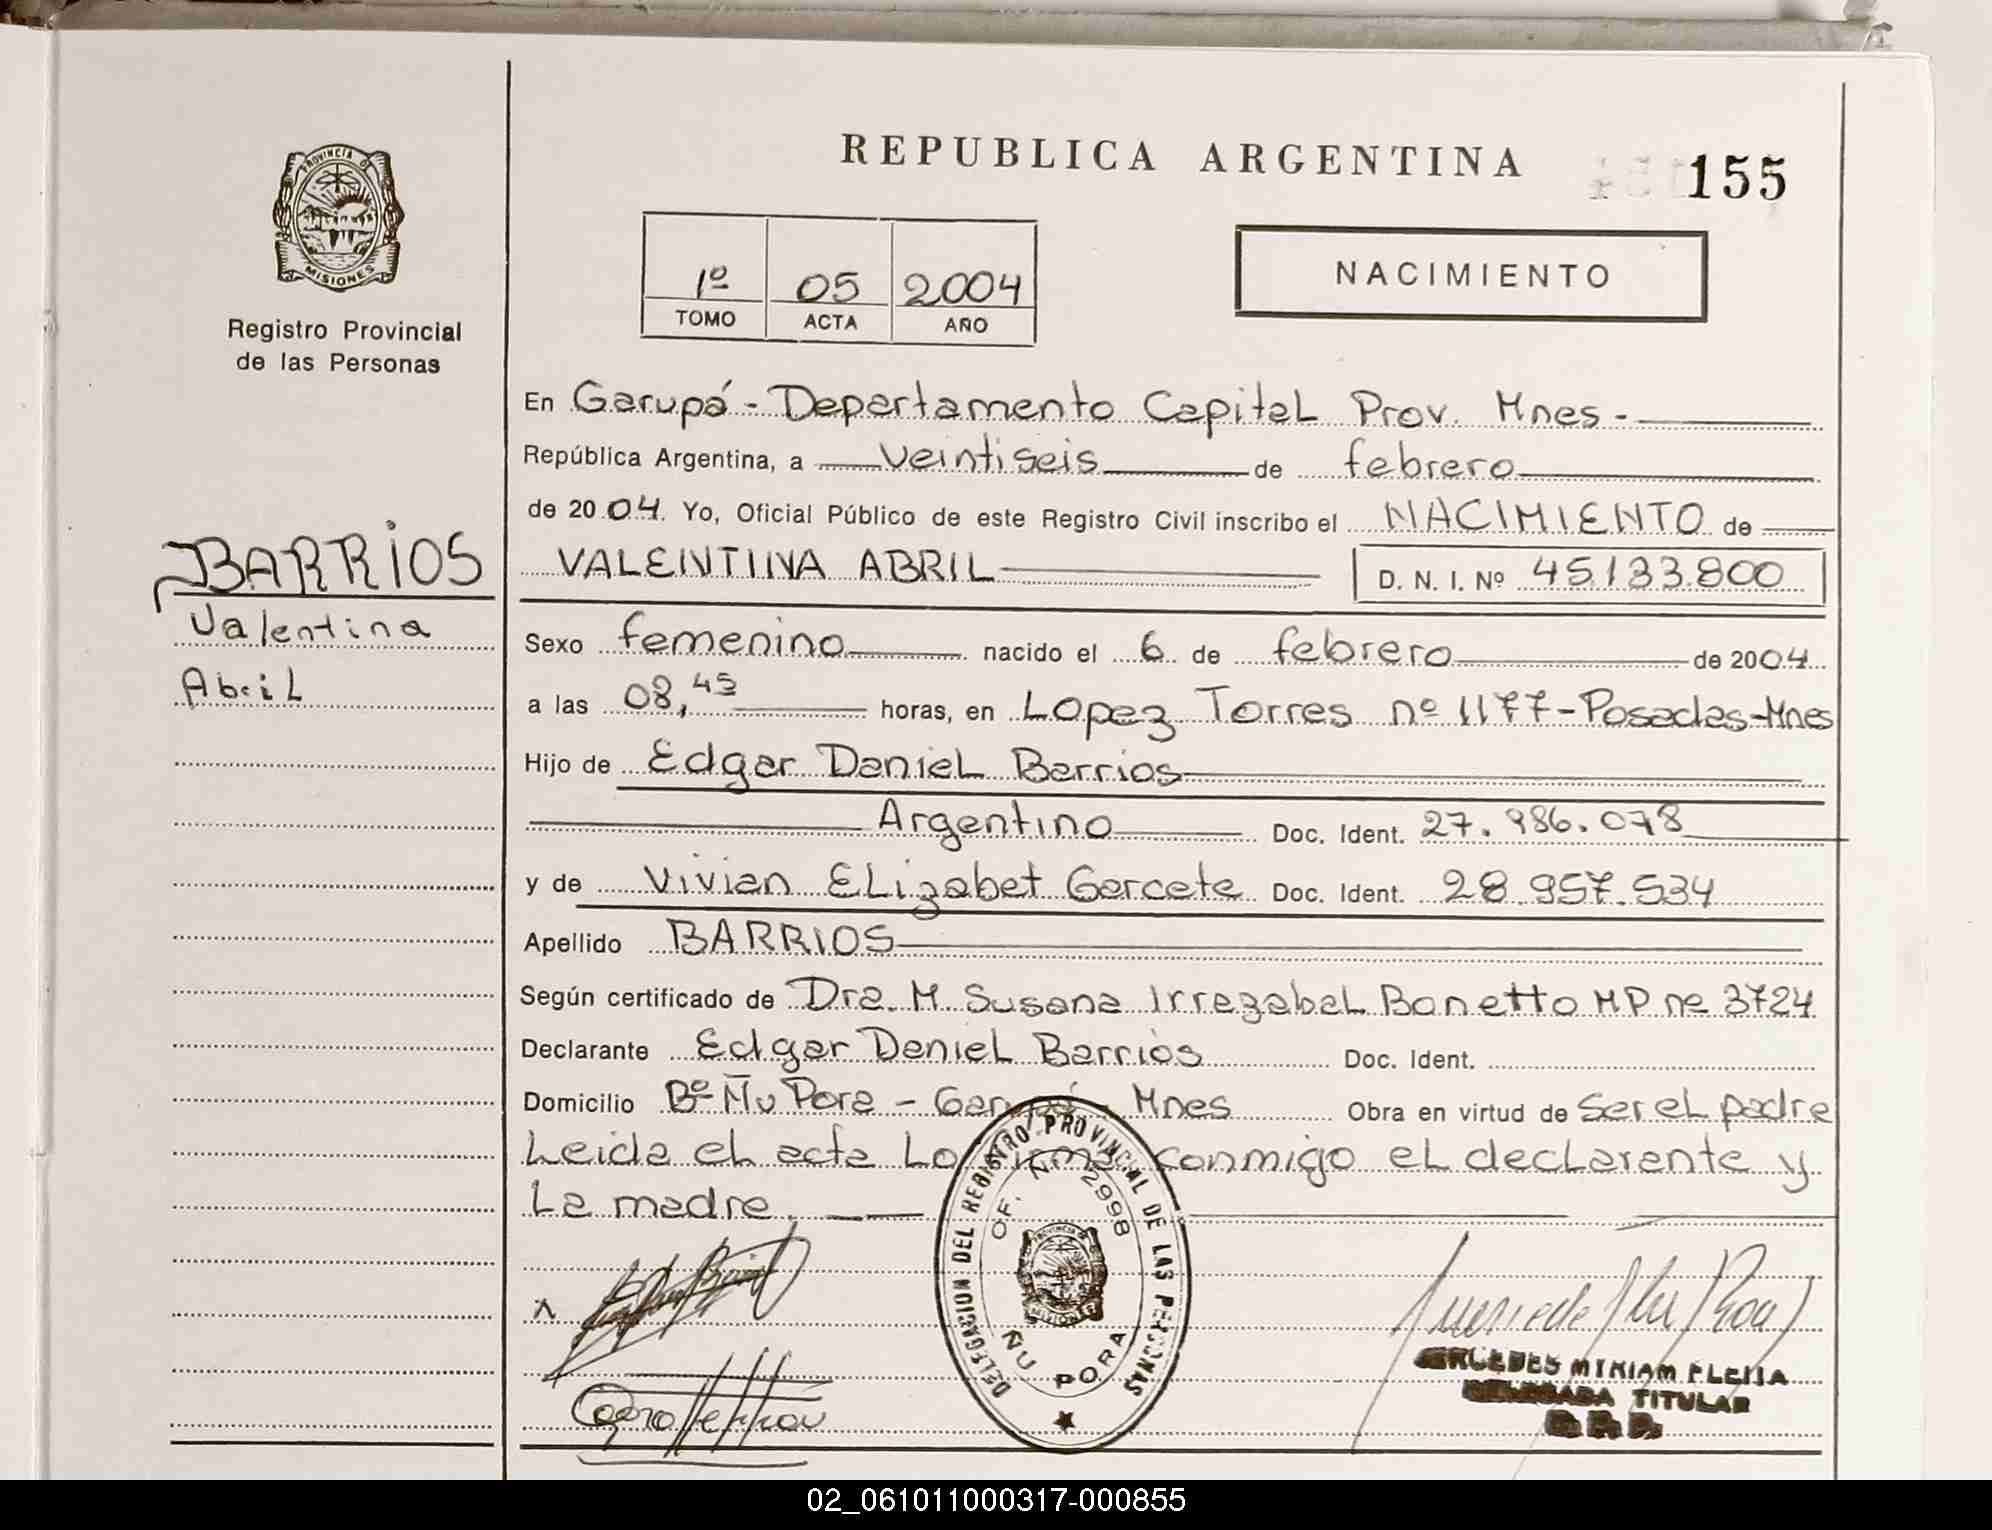 REPUBLICA ARGENTINA
155
PROVINCIA DE
MISIONES
Registro Provincial
de las Personas
1º 05 2004
TOMO ACTA AÑO
NACIMIENTO
En Garupá - Departamento Capital Prov. Mnes -
República Argentina, a veintiseis de febrero
de 2004. Yo, Oficial Público de este Registro Civil inscribo el NACIMIENTO de
BARRIOS
Valentina
Abril
VALENTINA ABRIL D. N. I. Nº 45.133.800
Sexo femenino nacido el 6 de febrero de 2004
a las 08,45 horas, en Lopez Torres nº 1177 - Posadas - Mnes
Hijo de Edgar Daniel Barrios
Argentino Doc. Ident. 27.986.078
y de Vivian Elizabet Garcete Doc. Ident. 28.957.534
Apellido BARRIOS
Según certificado de Dra. M. Susana Irrazabal Bonetto MP nº 3724
Declarante Edgar Daniel Barrios Doc. Ident.
Domicilio Bº Ñu Pora - Garupá - Mnes Obra en virtud de ser el padre
Leida el acta Lo firma conmigo el declarante y
La madre.
DELEGACION DEL REGISTRO PROVINCIAL DE LAS PERSONAS
OF. 2998
ÑU PORA
MERCEDES MYRIAM
DELEGADA TITULAR
02_061011000317-000855